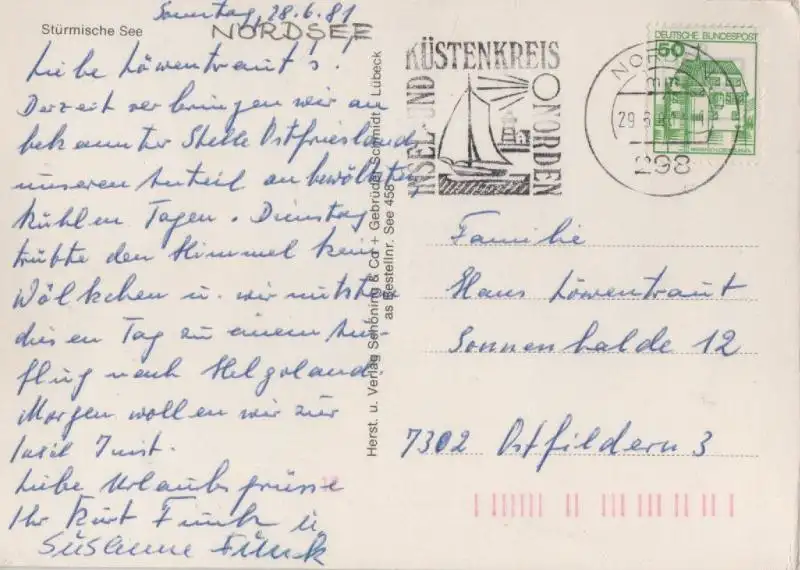 Sonntag, 28.6.81
Stürmische See
NORDSEE
Liebe Löwentraut's.
Derzeit verbringen wir an
bekannter Stelle Ostfrieslands
unseren Anteil an bewölkten
kühlen Tagen. Dienstag
trübte den Himmel kein
Wölkchen u. wir nutzten
diesen Tag zu einem Aus-
flug nach Helgoland.
Morgen wollen wir zur
Insel Juist.
Liebe Urlaubsgrüsse
Ihr Kurt Funk u
Susanne Funk
Herst. u. Verlag Schöning & Co + Gebrüder Schmidt, Lübeck
as Bestellnr. See 458
INSEL- UND
KÜSTENKREIS
NORDEN
NORD
29.6.
298
50
DEUTSCHE BUNDESPOST
Familie
Hans Löwentraut
Sonnenhalde 12
7302 Ostfildern 3